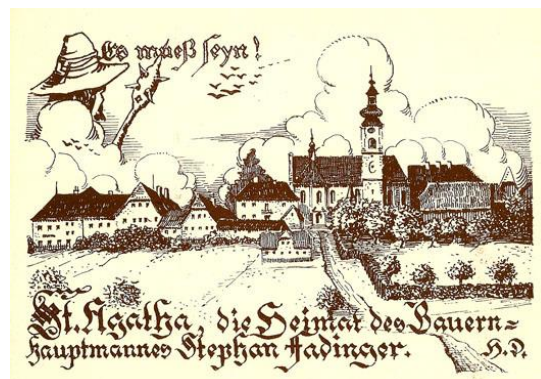 Es mueß seyn!
St. Agatha, die Heimat des Bauern=
hauptmannes Stephan Fadinger. H.D.